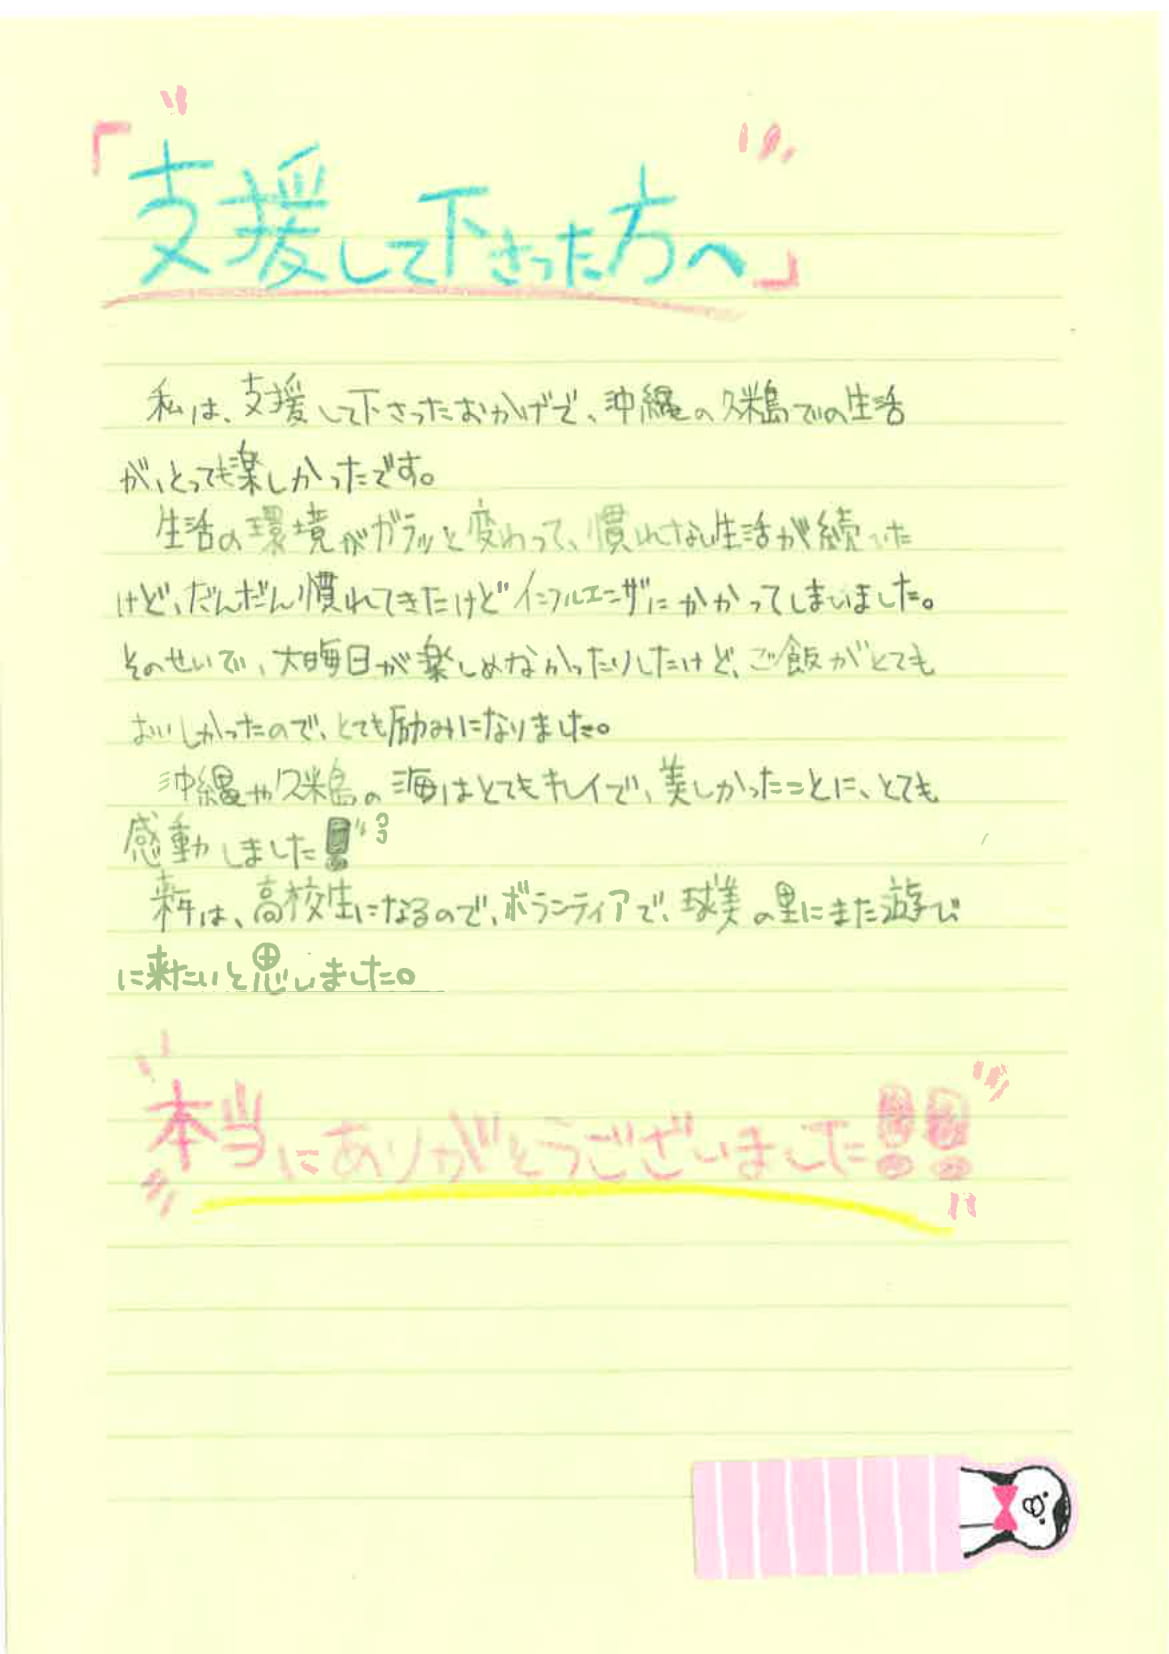 「支援して下さった方へ」
私は、支援して下さったおかげで、沖縄の久米島での生活
が、とっても楽しかったです。
生活の環境がガラッと変わって、慣れない生活が続いた
けど、だんだん慣れてきたけどインフルエンザにかかってしまいました。
そのせいで、大晦日が楽しめなかったりしたけど、ご飯がとても
おいしかったので、とても励みになりました。
沖縄や久米島の海はとてもキレイで、美しかったことに、とても
感動しました!
来年は、高校生になるので、ボランティアで、球美の里にまた遊び
に来たいと思いました。
本当にありがとうございました!!